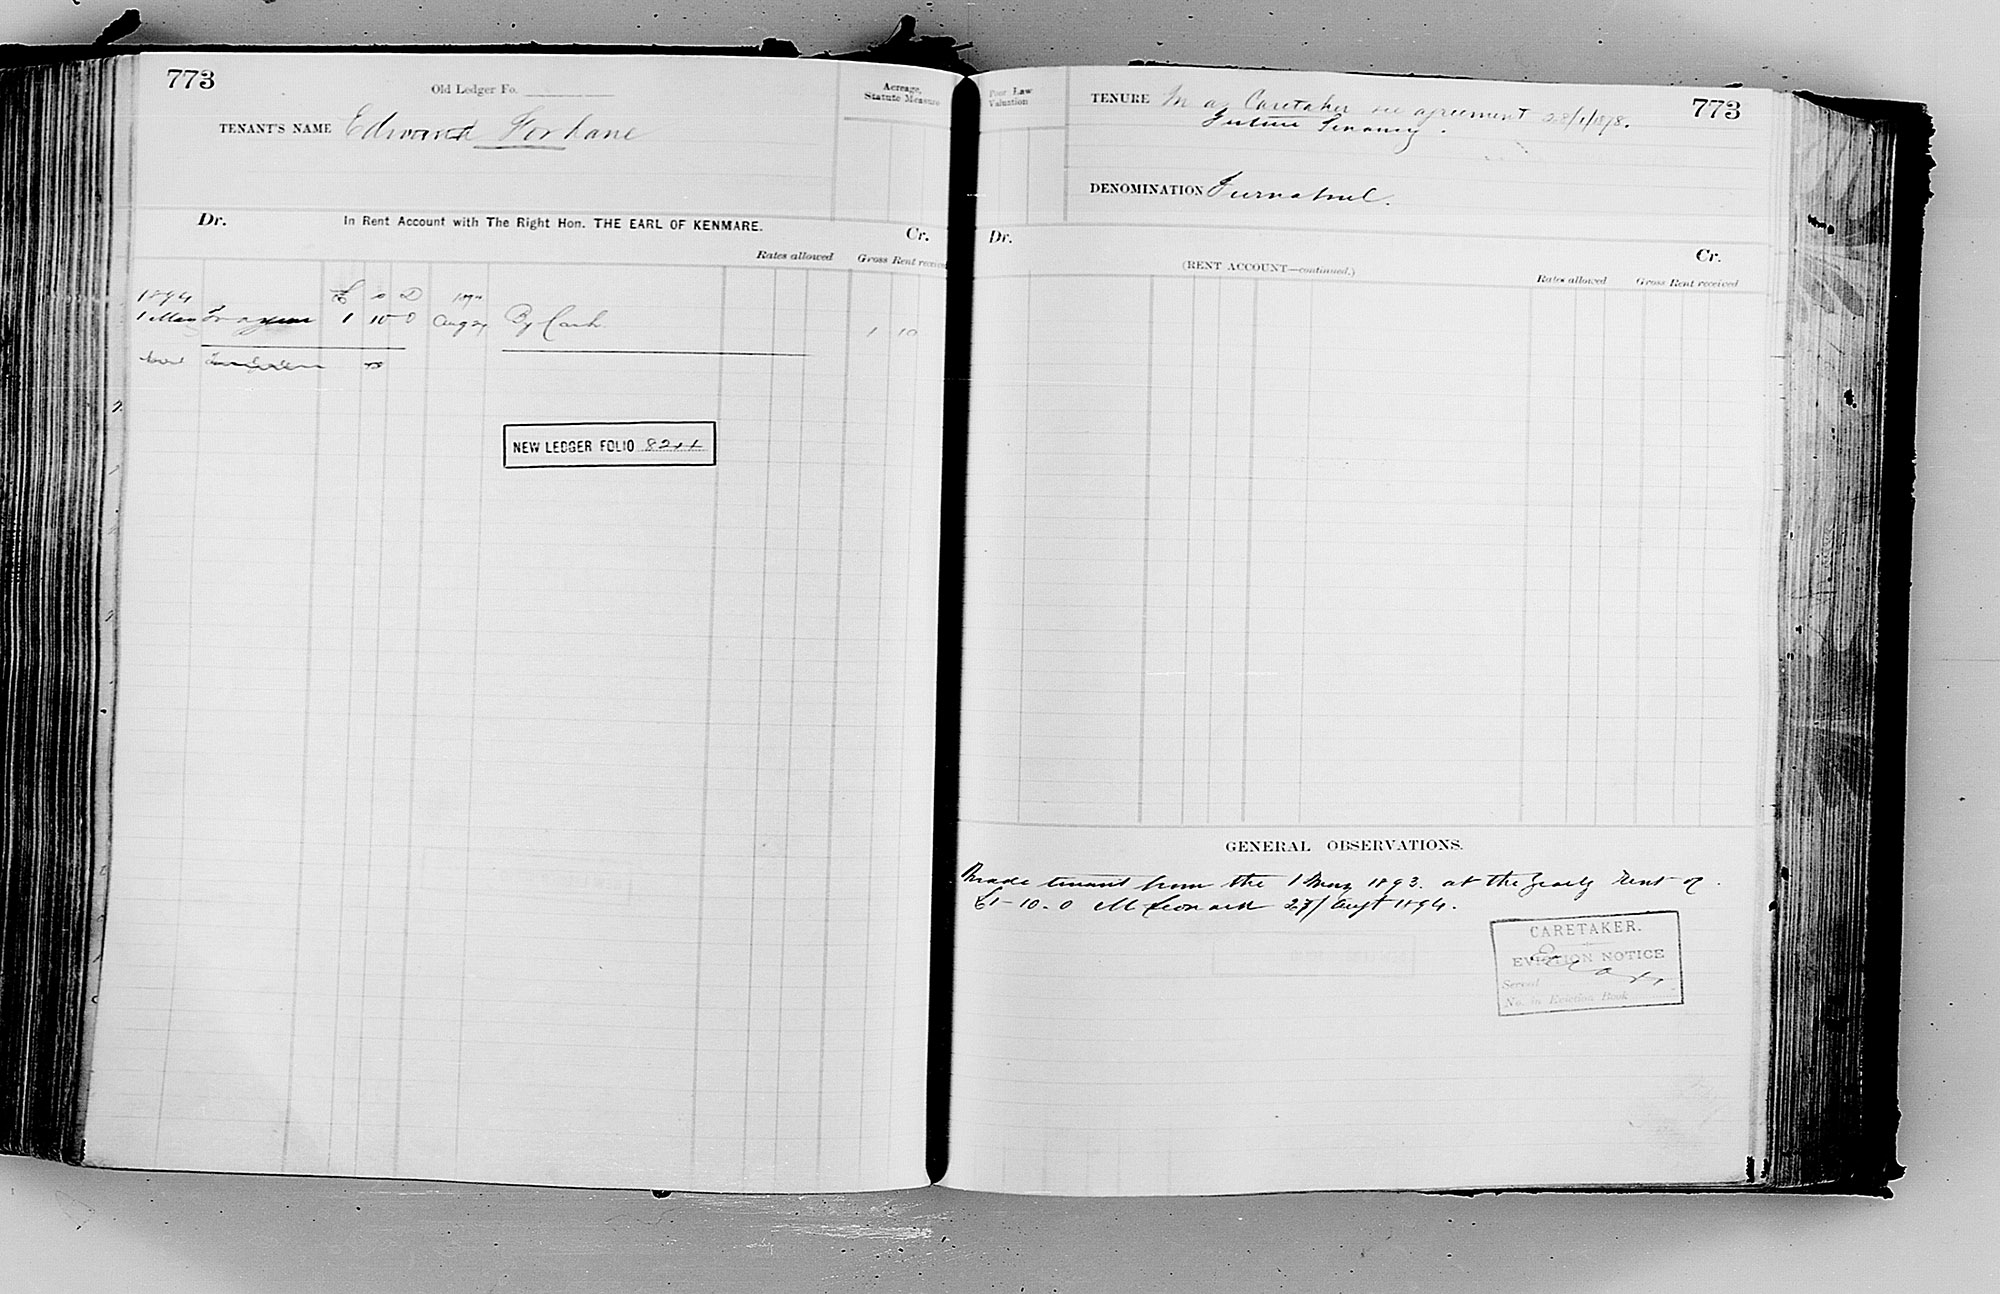 773
Old Ledger Fo.
TENANT'S NAME Edward Forhane
Acreage,
Statute Measure
Dr. In Rent Account with The Right Hon. THE EARL OF KENMARE. Cr.
Rates allowed Gross Rent received
1894 £ s D 1894
1 May 1 10 0 Aug 29 By Cash 1 10
NEW LEDGER FOLIO
Poor Law
Valuation
TENURE as Caretaker see agreement 28/1/1878.
Future Tenancy.
773
DENOMINATION
Dr. Cr.
(RENT ACCOUNT—continued.)
Rates allowed Gross Rent received
GENERAL OBSERVATIONS.
Made tenant from the 1 May 1893. at the yearly rent of
£1-10.0 M Leonard 27/Augt 1894.
CARETAKER.
EVICTION NOTICE
Served
No. in Eviction Book